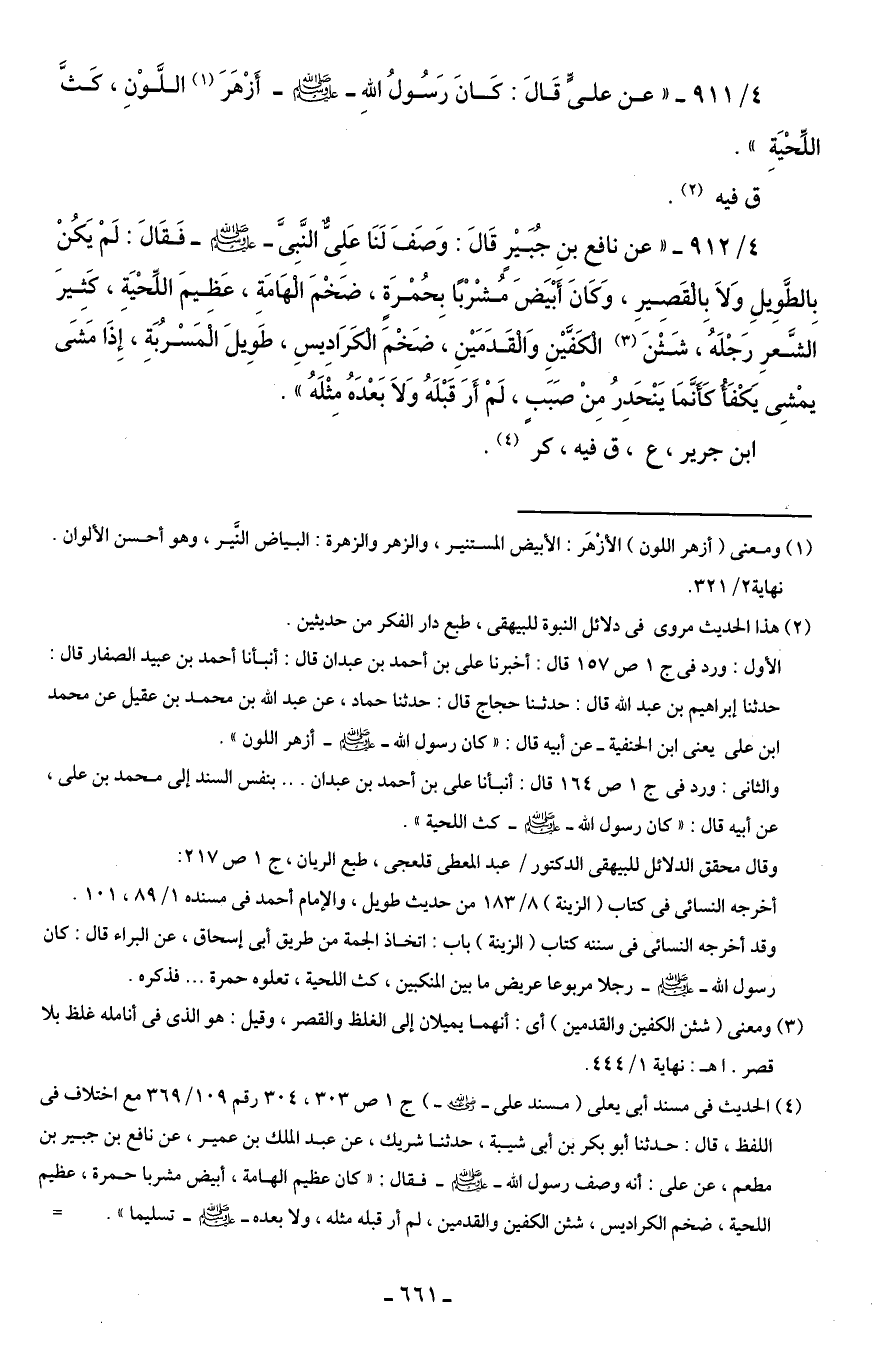 ٤/ ٩١١ ـ « عـن علـىٍّ قَـالَ : كَـانَ رَسُـولُ اللهِ ـ ﷺ ـ أَزْهَرَ (١) اللَّـوْنِ ، كَـثَّ
اللِّحْيَةِ » .
ق فيه (٢) .
٤/ ٩١٢ ـ « عن نافع بن جُبَـيْرٍ قَالَ : وَصَفَ لَنَا عَلِىٌّ النَّبِىَّ ـ ﷺ ـ فَـقَالَ : لَمْ يَكُنْ
بِالطَّوِيلِ وَلاَ بِالْقَصِـيرِ ، وَكَانَ أَبْيَضَ مُـشْرَبًا بِحُمْـرَةٍ ، ضَخْمَ الْهَامَةِ ، عَظِـيمَ اللِّحْيَةِ ، كَثِـيرَ
الشَّـعرِ رَجْلَهُ ، شَـثْنَ (٣) الْكَفَّيْنِ وَالْقَـدَمَيْنِ ، ضَخْمَ الْكَرَادِيسِ ، طَوِيلَ الْمَسْـرُبَةِ ، إِذَا مَشَى
يمْشِى يَكْفَأُ كَأَنَّمَا يَنْحَدِرُ مِنْ صَبَبٍ ، لَمْ أَرَ قَبْلَهُ وَلاَ بَعْدَهُ مِثْلَهُ » .
ابن جرير ، ع ، ق فيه ، كر (٤) .
(١) ومـعنى ( أزهر اللون ) الأزْهَر : الأبيض المستنيـر ، والزهر والزهرة : البـياض النَّيـر ، وهو أحـسن الألوان .
نهاية٢/ ٣٢١.
(٢) هذا الحديث مروى فى دلائل النبوة للبيهقى ، طبع دار الفكر من حديثين .
الأول : ورد فى ج ١ ص ١٥٧ قال : أخبرنا على بن أحمد بن عبدان قال : أنبـأنا أحمد بن عبيد الصفار قال :
حدثنا إبراهيم بن عبد الله قال : حدثـنا حجاج قال : حدثنا حماد ، عن عبد الله بن محمـد بن عقيل عن محمد
ابن على يعنى ابن الحنفية ـ عن أبيه قال : « كان رسول الله ـ ﷺ ـ أزهر اللون » .
والثانى : ورد فى ج ١ ص ١٦٤ قال : أنبـأنا على بن أحمد بن عبدان ... بنفس السند إلى مـحمد بن على ،
عن أبيه قال : « كان رسول الله ـ ﷺ ـ كث اللحية » .
وقال محقق الدلائل للبيهقى الدكتور / عبد المعطى قلعجى ، طبع الريان ، ج ١ ص ٢١٧:
أخرجه النسائى فى كتاب ( الزينة ) ٨/ ١٨٣ من حديث طويل ، والإمام أحمد فى مسنده ١/ ٨٩ ، ١٠١ .
وقد أخرجه النسائى فى سننه كتاب ( الزينة ) باب : اتخـاذ الجمة من طريق أبى إسحاق ، عن البراء قال : كان
رسول الله ـ ﷺ ـ رجلا مربوعا عريض ما بين المنكبين ، كث اللحية ، تعلوه حمرة ... فذكره .
(٣) ومعنى ( شئن الكفين والقدمين ) أى : أنهمـا يميلان إلى الغلظ والقصر ، وقيل : هو الذى فى أنامله غلظ بلا
قصر . ا هـ : نهاية ١/ ٤٤٤.
(٤) الحديث فى مسند أبى يعلى ( مـسند على ـ رضي الله عنه ـ ) ج ١ ص ٣٠٣ ، ٣٠٤ رقم ١٠٩/ ٣٦٩ مع اختلاف فى
اللفظ ، قال : حـدثنا أبو بكر بن أبى شيبة ، حدثنـا شريك ، عن عبـد الملك بن عميـر ، عن نافع بن جبـير بن
مطعم ، عن على : أنه وصف رسول الله ـ ﷺ ـ فـقال : « كان عظيم الهـامة ، أبيض مشربا حـمرة ، عظيم
اللحية ، ضخم الكراديس ، شئن الكفين والقدمين ، لم أر قبله مثله ، ولا بعده ـ ﷺ ـ تسليما » . =
ـ ٦٦١ ـ